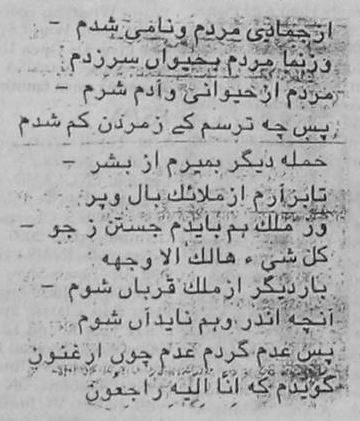 از جمادی مردم ونامی شدم –
وزنما مردم بحیواں سرزدم
مردم از حیوانی وآدم شدم –
پس چه ترسم کے زمردن کم شدم
حمله دیگر بمیرم از بشر –
تابرآرم از ملائك بال وپر
وز ملك ہم بایدم جستن ز جو –
کل شیء هالك الا وجهه
باردیگر از ملك قرباں شوم –
آنچه اندر وہم نایداں شوم
پس عدم گردم عدم چوں ارغنون
گویدم که انا الیه راجعون